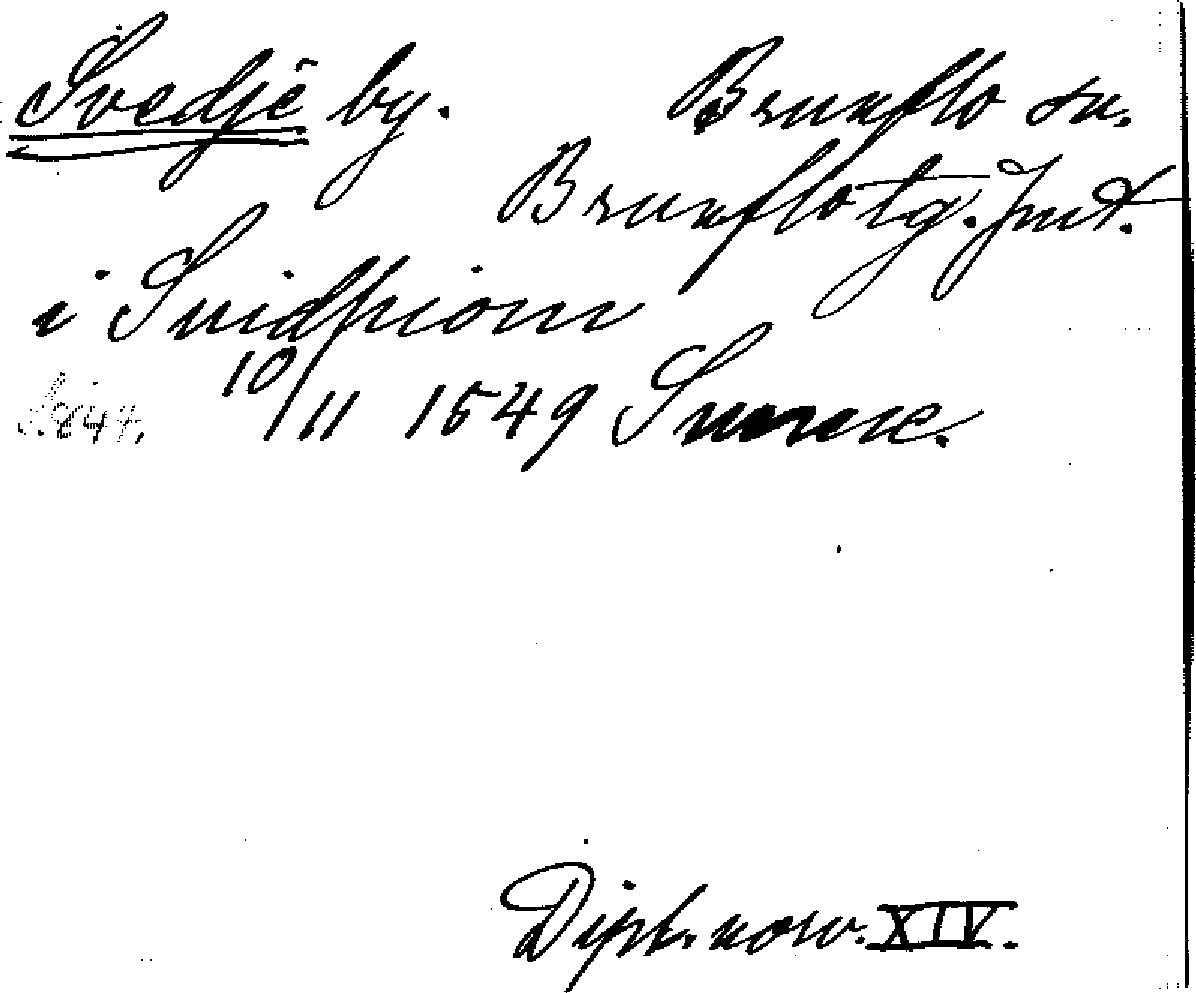 Svedje by. Brunflo sn.
Brunflo tg. Jmt.
i Suidhiom
S. 847. 10/11 1549 Sunne.
Dipl. norv. XIV.